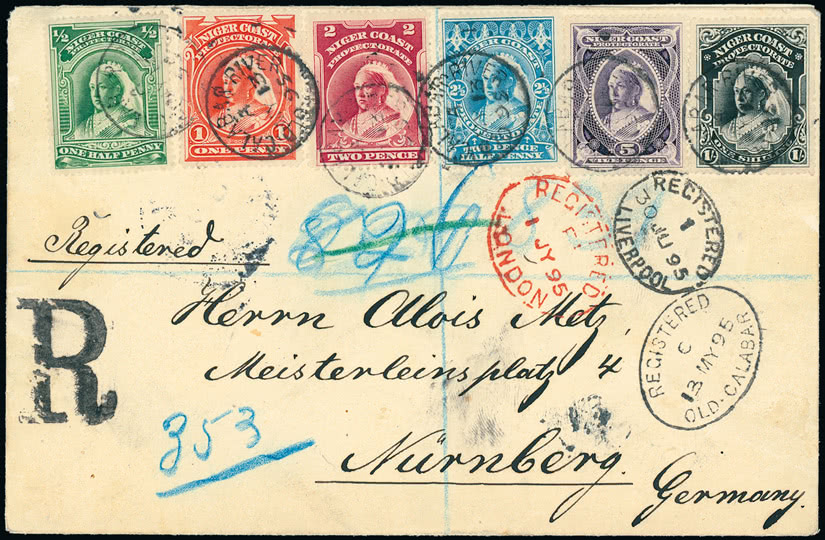 1/2 1/2
NIGER COAST
PROTECTORATE
ONE HALF PENNY
NIGER COAST
PROTECTORATE
1 1
ONE PENNY
2 2
NIGER COAST
PROTECTORATE
TWO PENCE
NIGER COAST
PROTECTORATE
2½ 2½
TWO PENCE
HALF PENNY
NIGER COAST
PROTECTORATE
5
FIVE PENCE
NIGER COAST
PROTECTORATE
1/- 1/-
ONE SHILLING
CALABAR RIVER
Registered
826
REGISTERED
1 JY 95
LONDON
REGISTERED
1
LIVERPOOL
REGISTERED
C
13 MY 95
OLD-CALABAR
R
Herrn Alois Metz,
Meisterleinsplatz 4
353
Nürnberg.
Germany.